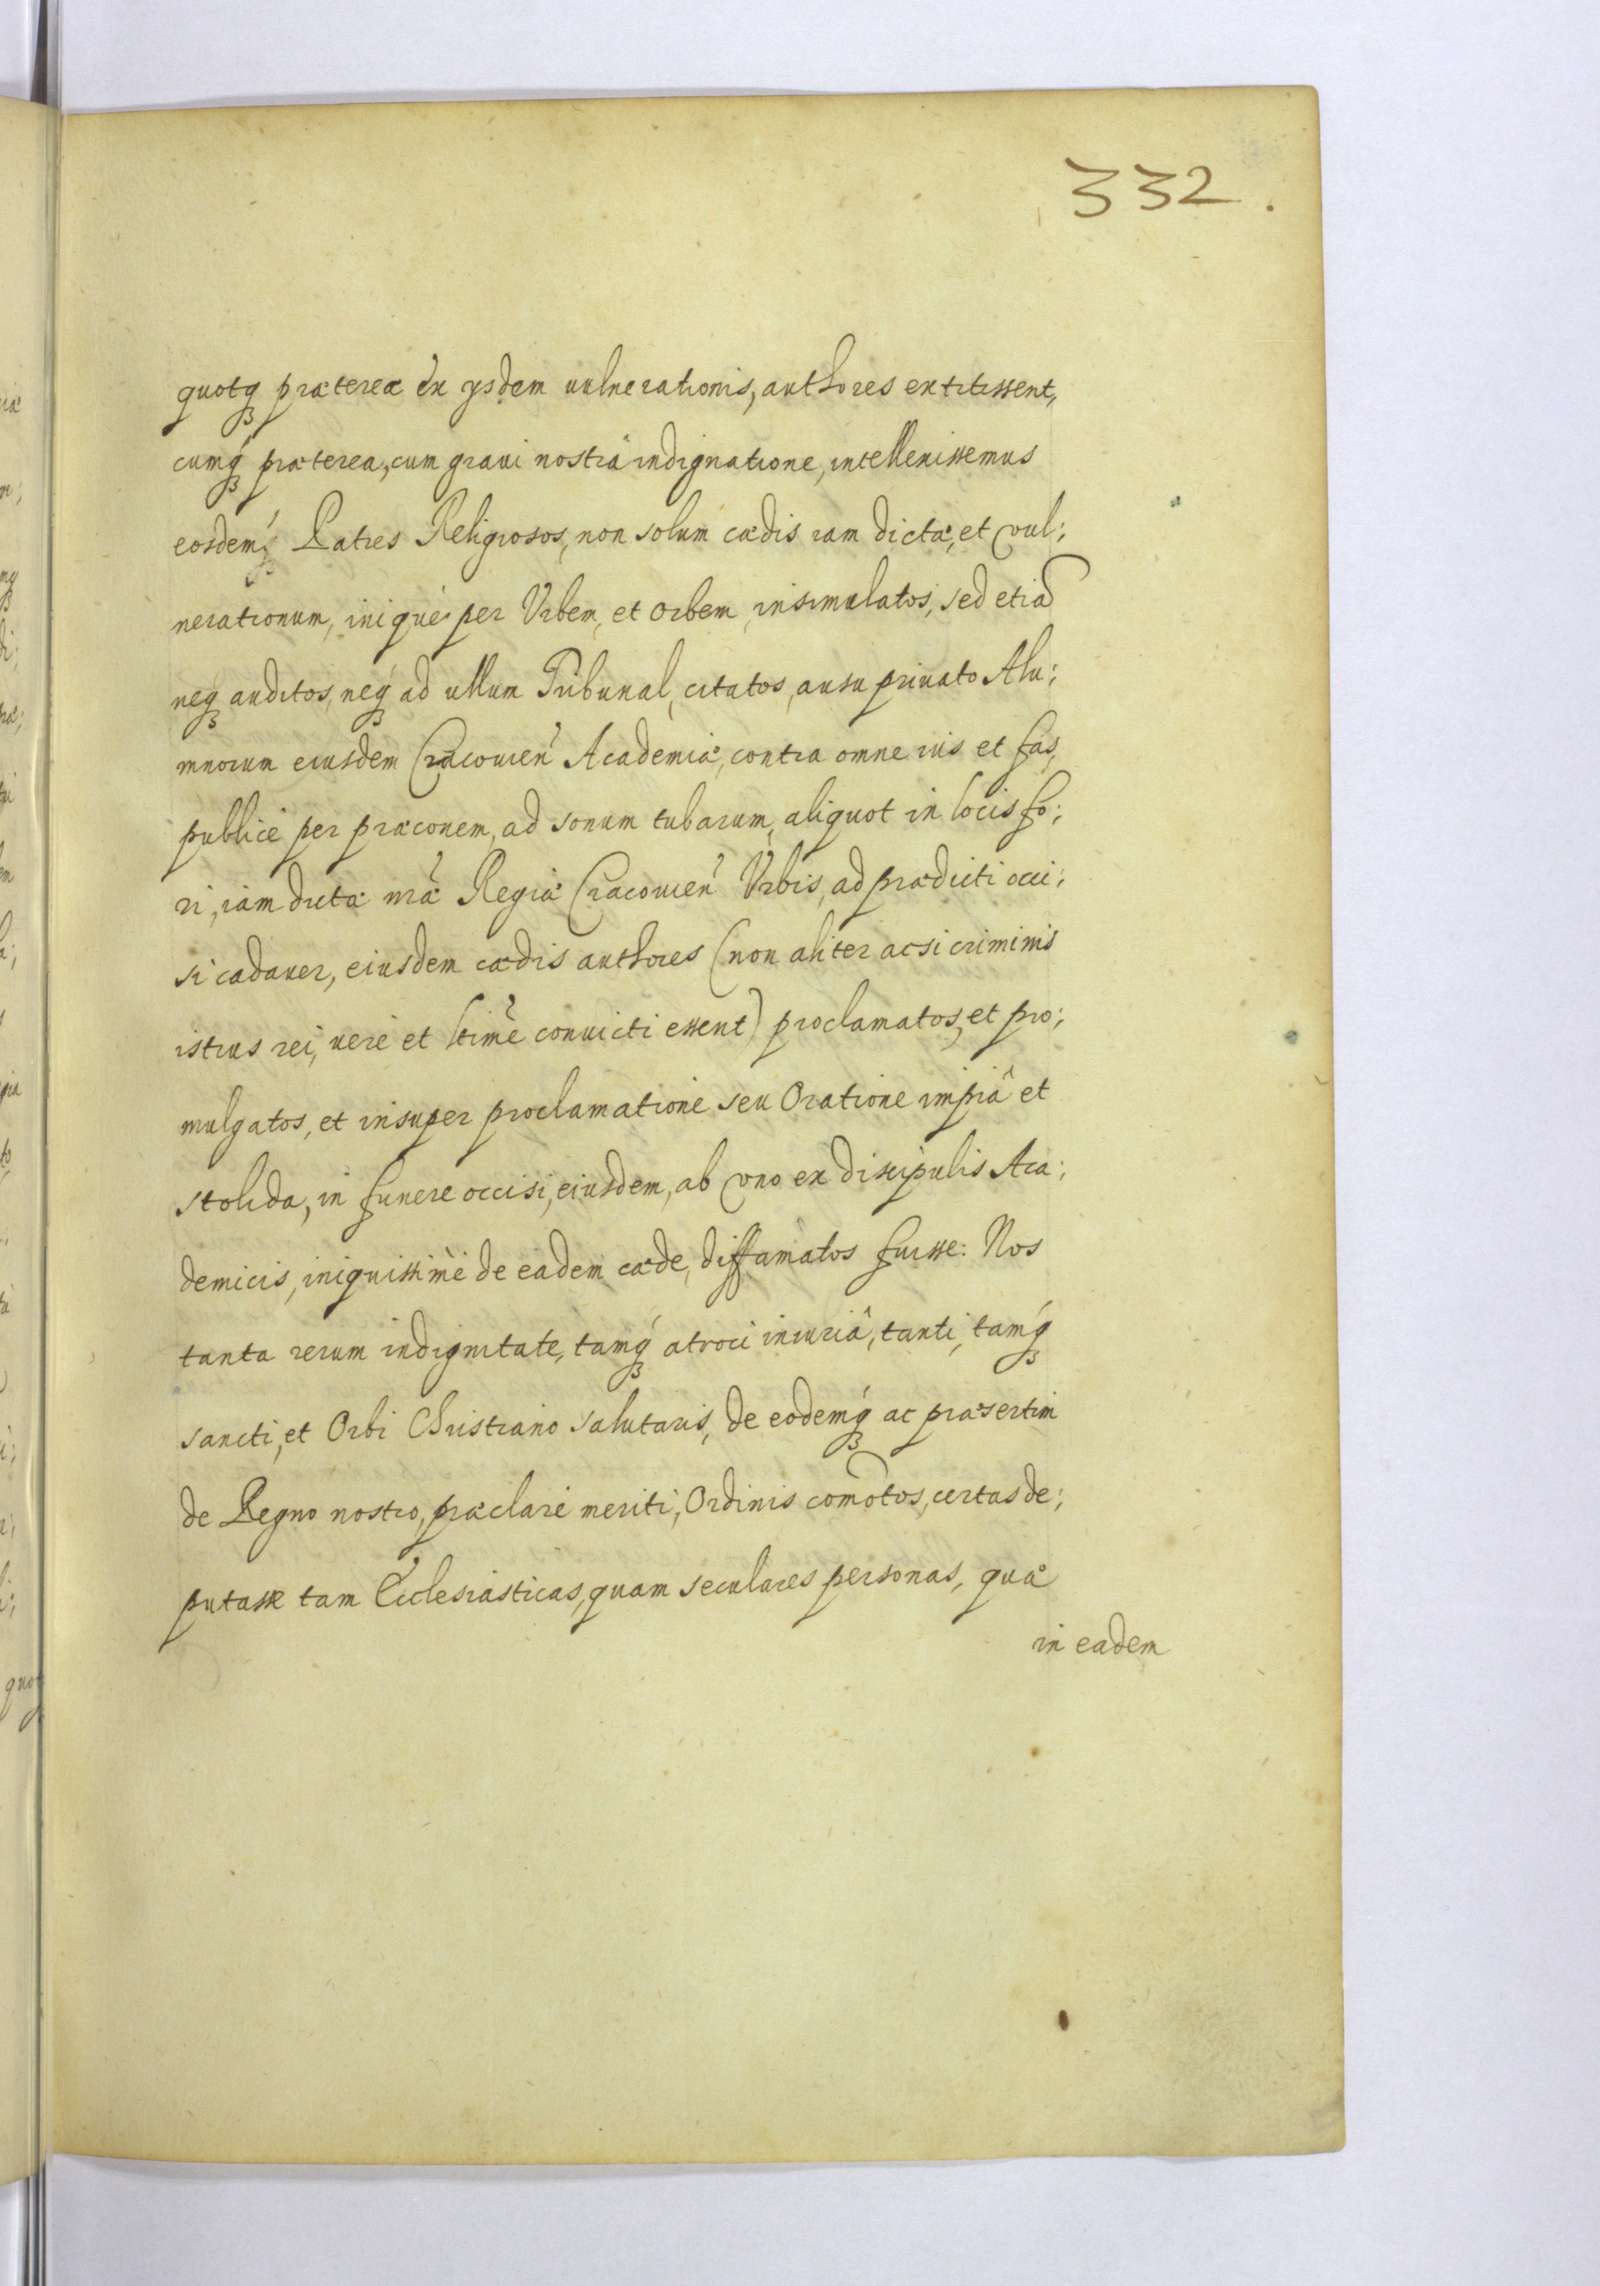 332.
quotq́ꝫ præterea ex ysdem vulnerationis, authores extitissent,
cumq́ꝫ præterea, cum graui nostrâ indignatione, intellexissemus
eosdemq́ꝫ Patres Religiosos, non solum cædis iam dictæ, et vul;
nerationum, iniquè per Vrbem, et orbem, insimulatos, sed etiã
neqꝫ auditos, neq́ꝫ ad ullum Tribunal, citatos, ausu priuato Alu;
mnorum eiusdem Cracouień Academiæ, contra omne ius et fas,
publicè per præconem, ad sonum tubarum, aliquot in locis fo;
ri, iam dictæ nr̃æ Regiæ Cracouień Vrbis, ad prædicti occi;
si cadauer, eiusdem cædis authores (non aliter ac si criminis
istius rei, verè et ltimè conuicti essent) proclamatos, et pro;
mulgatos, et insuper proclamatione seu Oratione impiâ et
stolida, in funere occisi, eiusdem, ab vno ex discipulis Aca;
demicis, iniquissimè de eadem cæde, diffamatos fuisse: Nos
tanta rerum indignitate, tamq́ꝫ atroci iniuriâ, tanti, tamq́ꝫ
sancti, et Orbi Christiano salutaris, de eodemq́ꝫ ac præsertim
de Regno nostro, præclarè meriti, Ordinis com̃otos, certas de;
putasse tam Ecclesiasticas, quam seculares personas, quæ
in eadem